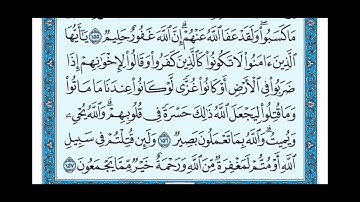 مَا كَسَبُوا۟ۖ وَلَقَدْ عَفَا ٱللَّهُ عَنْهُمْۗ إِنَّ ٱللَّهَ غَفُورٌ حَلِيمٌ ١٥٥ يَٰٓأَيُّهَا
ٱلَّذِينَ ءَامَنُوا۟ لَا تَكُونُوا۟ كَٱلَّذِينَ كَفَرُوا۟ وَقَالُوا۟ لِإِخْوَٰنِهِمْ إِذَا
ضَرَبُوا۟ فِى ٱلْأَرْضِ أَوْ كَانُوا۟ غُزًّى لَّوْ كَانُوا۟ عِندَنَا مَا مَاتُوا۟
وَمَا قُتِلُوا۟ لِيَجْعَلَ ٱللَّهُ ذَٰلِكَ حَسْرَةً فِى قُلُوبِهِمْۗ وَٱللَّهُ يُحْىِۦ
وَيُمِيتُۗ وَٱللَّهُ بِمَا تَعْمَلُونَ بَصِيرٌ ١٥٦ وَلَئِن قُتِلْتُمْ فِى سَبِيلِ
ٱللَّهِ أَوْ مُتُّمْ لَمَغْفِرَةٌ مِّنَ ٱللَّهِ وَرَحْمَةٌ خَيْرٌ مِّمَّا يَجْمَعُونَ ١٥٧